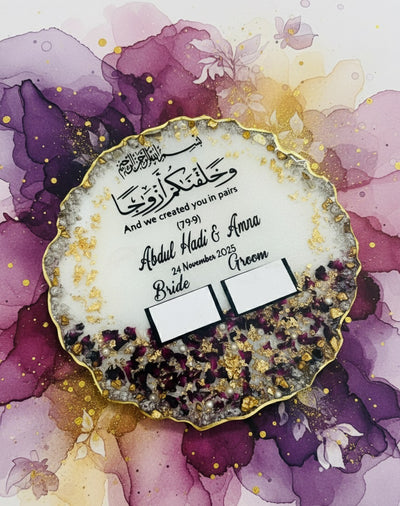 بسم الله الرحمن الرحيم
وَخَلَقْنَكُمْ أَزْوَجًا
And we created you in pairs
(79-9)
Abdul Hadi & Amna
24 November 2025
Bride Groom